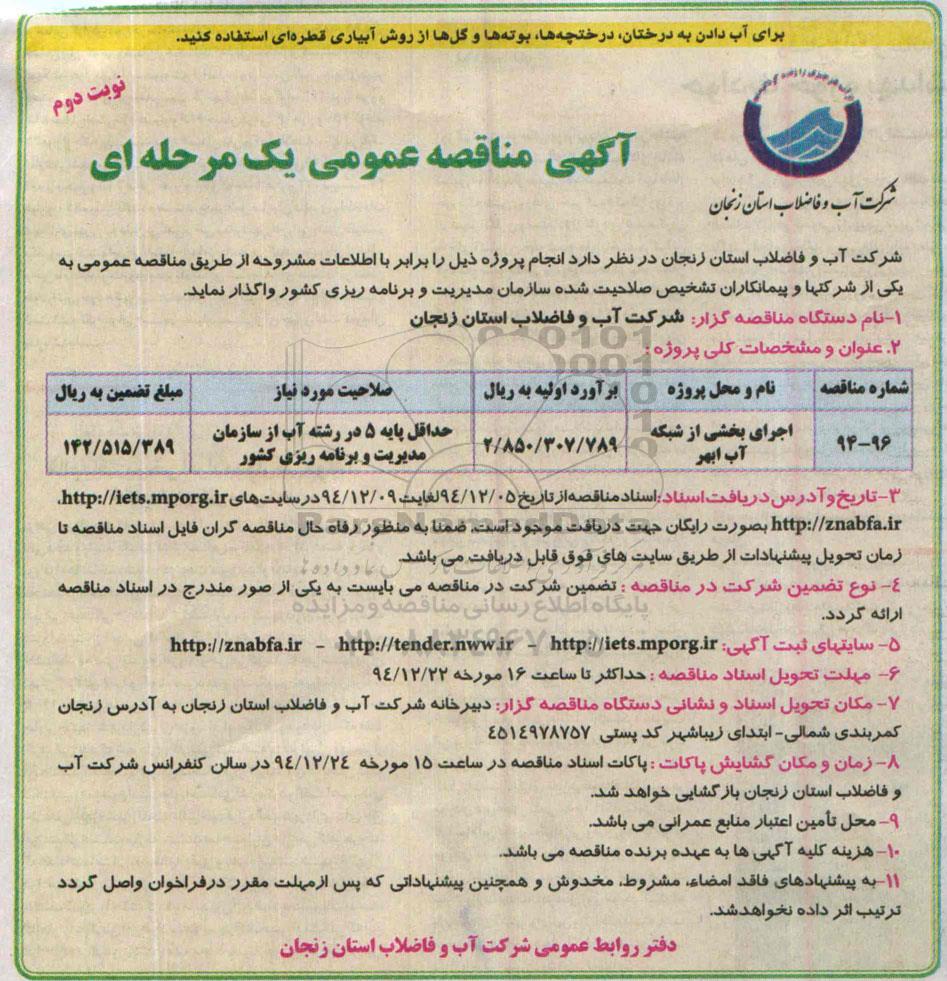 برای آب دادن به درختان، درختچه‌ها، بوته‌ها و گل‌ها از روش آبیاری قطره‌ای استفاده کنید.
نوبت دوم
آگهی مناقصه عمومی یک مرحله ای
شرکت آب و فاضلاب استان زنجان
شرکت آب و فاضلاب استان زنجان در نظر دارد انجام پروژه ذیل را برابر با اطلاعات مشروحه از طریق مناقصه عمومی به
یکی از شرکتها و پیمانکاران تشخیص صلاحیت شده سازمان مدیریت و برنامه ریزی کشور واگذار نماید.
۱-نام دستگاه مناقصه گزار: شرکت آب و فاضلاب استان زنجان
۲. عنوان و مشخصات کلی پروژه :
شماره مناقصه نام و محل پروژه برآورد اولیه به ریال صلاحیت مورد نیاز مبلغ تضمین به ریال
۹۴-۹۶ اجرای بخشی از شبکه آب ابهر ۲/۸۵۰/۳۰۷/۷۸۹ حداقل پایه ۵ در رشته آب از سازمان مدیریت و برنامه ریزی کشور ۱۴۲/۵۱۵/۳۸۹
۳-تاریخ و آدرس دریافت اسناد:اسناد مناقصه از تاریخ ۹۴/۱۲/۰۵ لغایت ۹۴/۱۲/۰۹ در سایت های http://iets.mporg.ir،
http://znabfa.ir بصورت رایگان جهت دریافت موجود است. ضمنا به منظور رفاه حال مناقصه گران فایل اسناد مناقصه تا
زمان تحویل پیشنهادات از طریق سایت های فوق قابل دریافت می باشد.
۴- نوع تضمین شرکت در مناقصه : تضمین شرکت در مناقصه می بایست به یکی از صور مندرج در اسناد مناقصه
ارائه گردد.
۵- سایتهای ثبت آگهی: http://znabfa.ir - http://tender.nww.ir - http://iets.mporg.ir
۶- مهلت تحویل اسناد مناقصه : حداکثر تا ساعت ۱۶ مورخه ۹۴/۱۲/۲۲
۷- مکان تحویل اسناد و نشانی دستگاه مناقصه گزار: دبیرخانه شرکت آب و فاضلاب استان زنجان به آدرس زنجان
کمربندی شمالی- ابتدای زیباشهر کد پستی ۴۵۱۴۹۷۸۷۵۷
۸- زمان و مکان گشایش پاکات : پاکات اسناد مناقصه در ساعت ۱۵ مورخه ۹۴/۱۲/۲۴ در سالن کنفرانس شرکت آب
و فاضلاب استان زنجان بازگشایی خواهد شد.
۹- محل تأمین اعتبار منابع عمرانی می باشد.
۱۰- هزینه کلیه آگهی ها به عهده برنده مناقصه می باشد.
۱۱-به پیشنهادهای فاقد امضاء، مشروط، مخدوش و همچنین پیشنهاداتی که پس ازمهلت مقرر درفراخوان واصل گردد
ترتیب اثر داده نخواهدشد.
دفتر روابط عمومی شرکت آب و فاضلاب استان زنجان